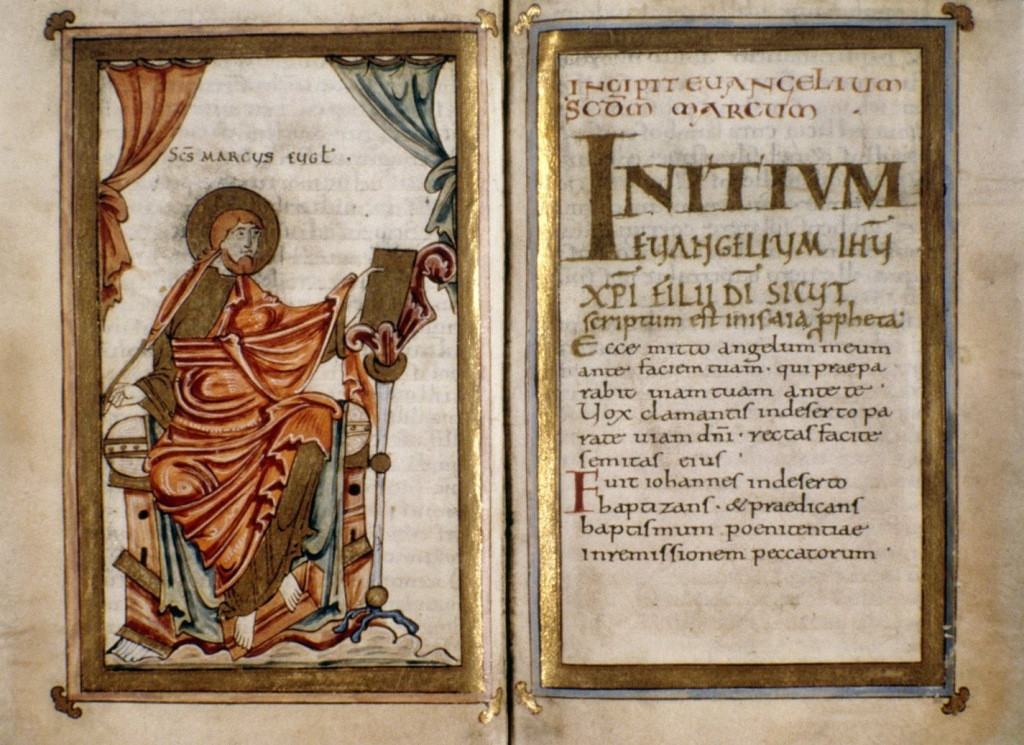 SCS MARCUS EUGL·
INCIPIT EUANGELIUM
SCDM MARCUM
INITIUM
EUANGELIUM IHU
XPI FILII DI SICUT
scriptum est inisaia ppheta:
Ecce mitto angelum meum
ante faciem tuam · qui praepa
rabit uiam tuam ante te ·
Uox clamantis indeserto pa
rate uiam dni · rectas facite
semitas eius ·
Fuit iohannes indeserto
baptizans · & praedicans
baptismum poenitentiae
inremissionem peccatorum ·